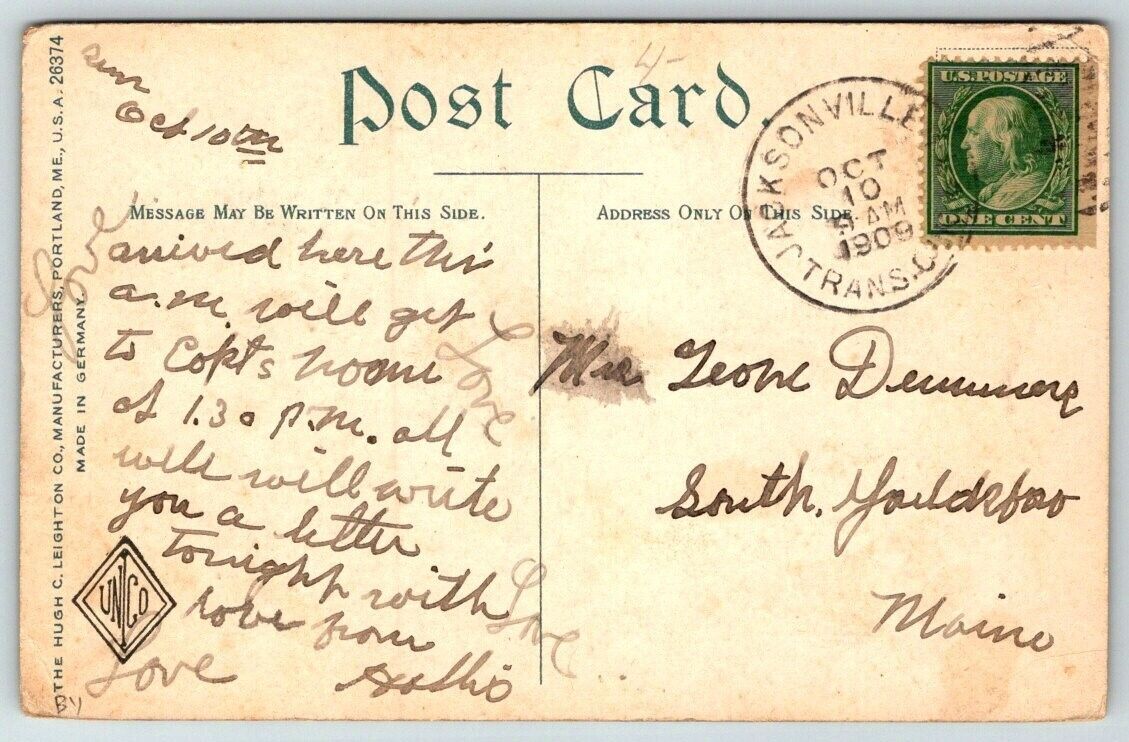 THE HUGH C. LEIGHTON CO., MANUFACTURERS, PORTLAND, ME., U.S.A. 26374
MADE IN GERMANY.
Post Card.
Oct 10th
MESSAGE MAY BE WRITTEN ON THIS SIDE.
arrived here this
a.m. will get
to Capt's home
at 1.30 P.M. all
well will write
you a letter
tonight with
love from
Hollis
Love
Love
Love
Love
UNCO
BY
4-
ADDRESS ONLY ON THIS SIDE.
JACKSONVILLE
OCT
10
AM
1909
TRANS.
U.S. POSTAGE
ONE CENT
Mrs Leone Demmons
South. Gouldsboro
Maine